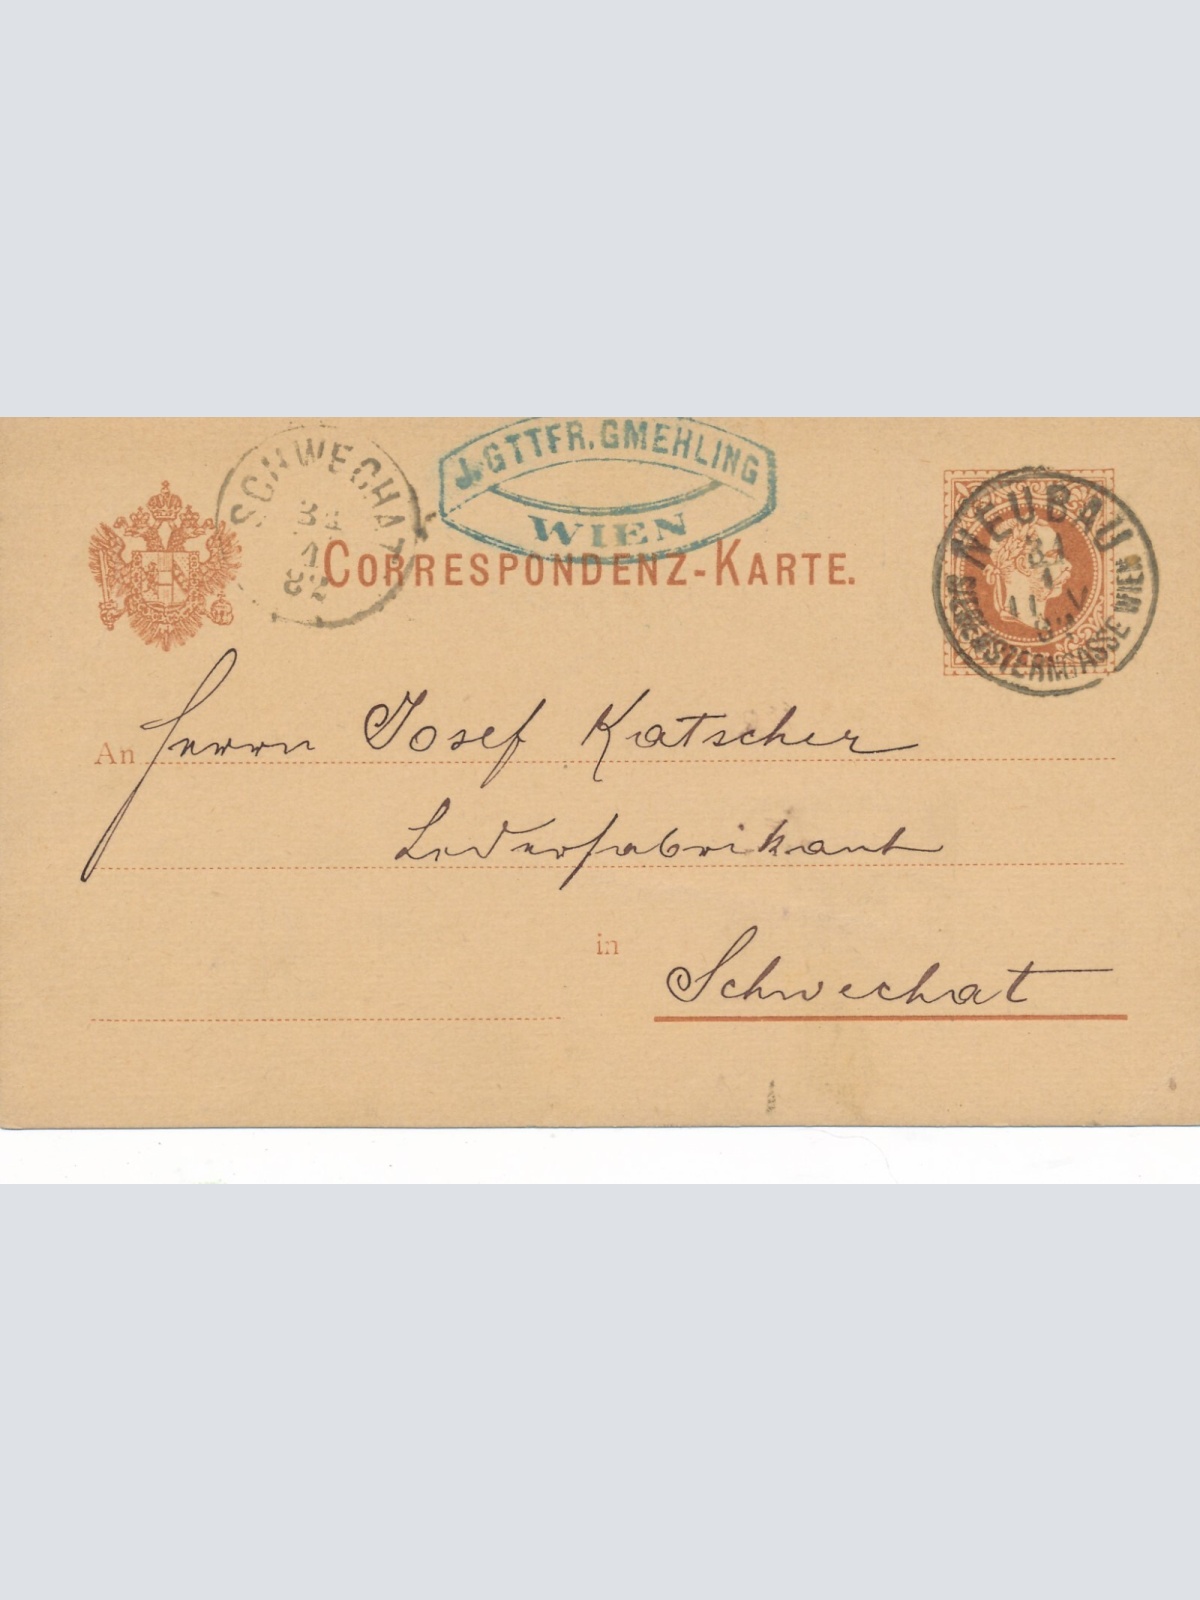 SCHWECHAT
J. GTTFR. GMEHLING
WIEN
CORRESPONDENZ-KARTE.
NEUBAU
WIEN
An Herrn Josef Katscher
Lederfabrikant
in Schwechat